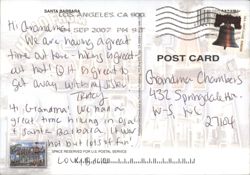 SANTA BARBARA
LOS ANGELES CA 900
SEP 2007 PM
Hi Grandma!
We are having a great
time out here - hiking is great
out hot! is great to
get away with my
Hi Grandma! We had a
great time hiking in Ojai
& Santa Barbara. It was
hot but lots of fun!
SPACE RESERVED FOR U.S. POSTAL SERVICE
POST CARD
Grandma Chambers
432 Springdale Ave
W-S, NC
27104